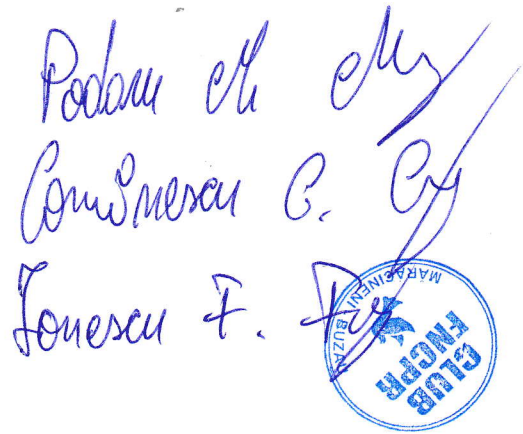 Podaru M
Comănescu C.
Ionescu F.
MĂRĂCINENI BUZĂU
CLUB
FNCPR